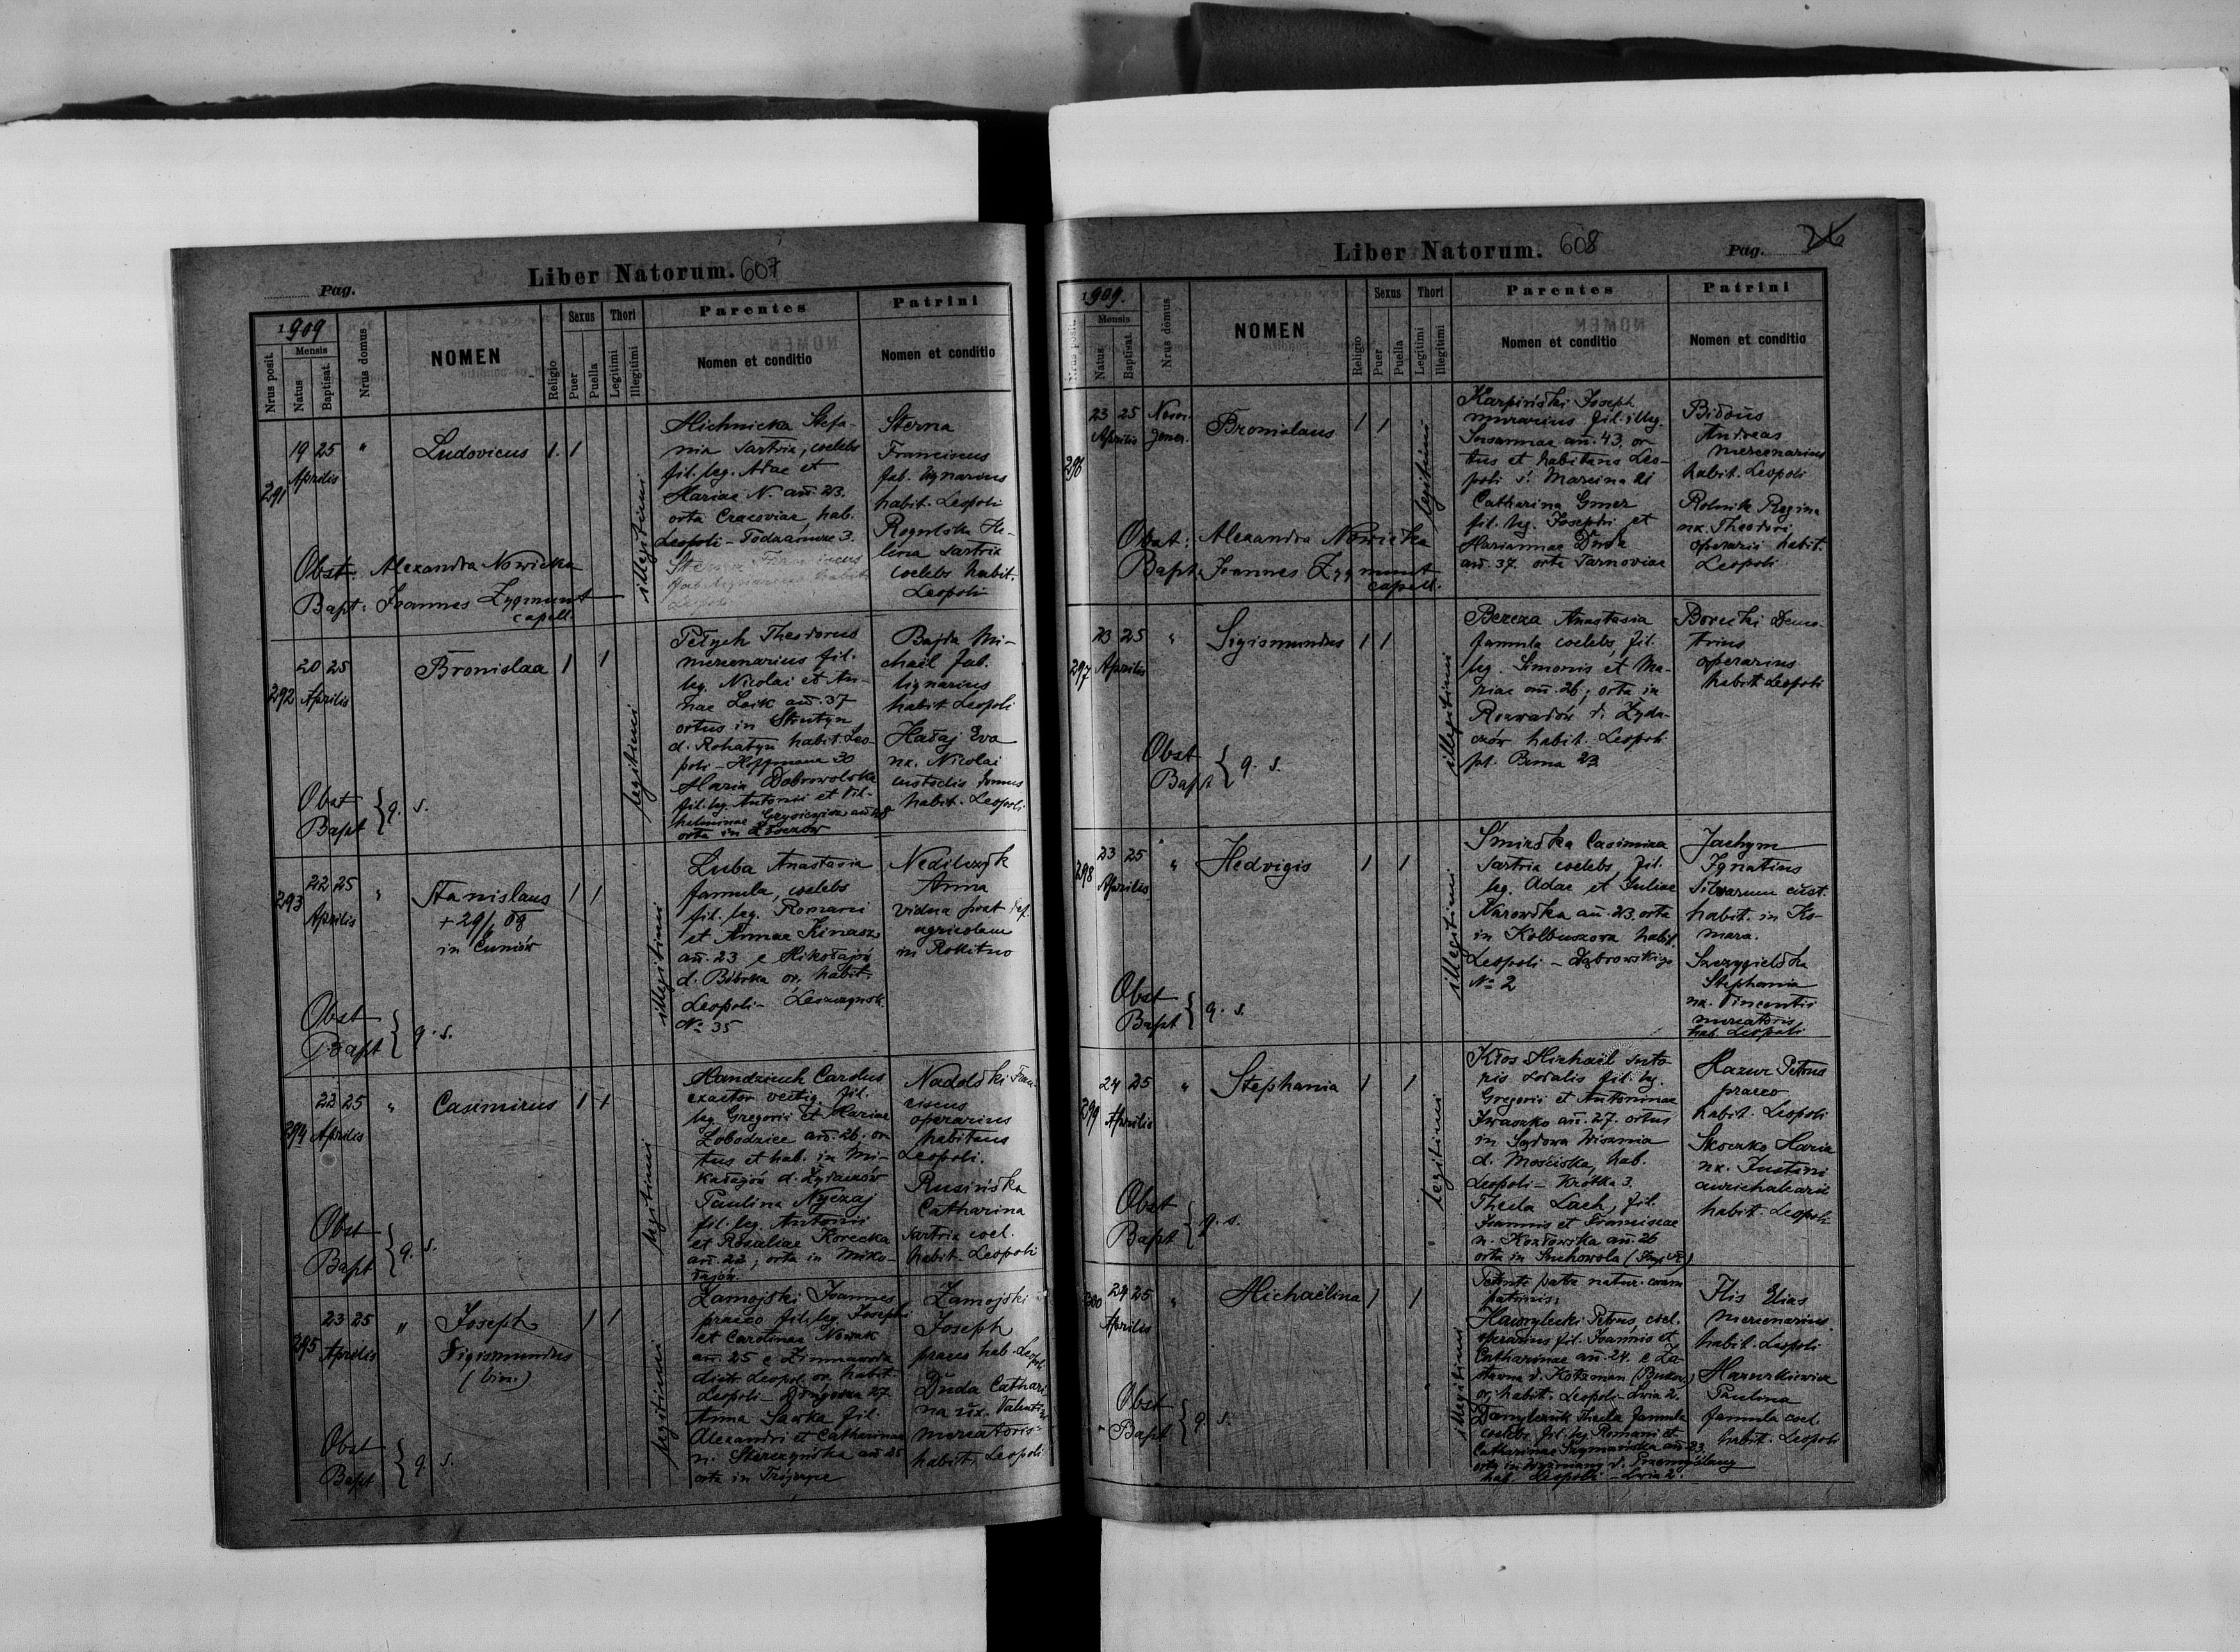 Pag.
Liber Natorum. 607
1909
Nrus posit.
Mensis
Natus
Baptisat.
Nrus domus
NOMEN
Religio
Sexus
Puer
Puella
Thori
Legitimi
Illegitimi
Parentes
Nomen et conditio
Patrini
Nomen et conditio
291
19 25
Aprilis
"
Ludovicus
1 1
illegitimi
Michnicka Stefa-
nia sartrix, coelebs
fil. leg. Adae et
Mariae N. añ. 23.
orta Cracoviae, hab.
Leopoli - 3.
Sterna Franciscus
Sterna
Franciscus
fab. lignarius
habit. Leopoli
Rogulska He-
lena sartrix
coelebs habit.
Leopoli
Obst: Alexandra Nowicka
Bapt: Joannes Zygmunt
capell.
292
20 25
Aprilis
Bronislaa
1 1
legitimi
Petych Theodorus
mercenarius fil.
leg. Nicolai et An-
nae Loik añ. 37
ortus in Strutyn
d. Rohatyn habit. Leo-
poli - Hoffmana 30
Maria Dobrowolska
fil. leg. Antonii et Vil-
helminae
orta in Złoczów
Bajda Mi-
chael fab.
lignarius
habit Leopoli
Hataj Eva
ux. Nicolai
custodis domus
habit. Leopoli
Obst
Bapt } q. s.
293
22 25
Aprilis
"
Stanislaus
+ 29/6 09
in Cuniów
1 1
illegitimi
Luba Anastasia
famula, coelebs
fil. leg. Romani
et Annae Kinasz
añ. 23 e Mikołajów
d. Bóbrka or. habit.
Leopoli -
No 35
Anna
vidua post def.
agricolam
in Rokitno
Obst
Bapt } q. s.
294
22 25
Aprilis
"
Casimirus
1 1
legitimi
Handziuk Carolus
exactor vectig. fil.
leg. Gregorii et Mariae
Łobodzice añ. 26, or-
tus et hab. in Mi-
kołajów d. Żydaczów
Paulina Nyczaj
fil. leg. Antonii
et Rosaliae Korecka
añ. 22, orta in Miko-
łajów.
Nadolski Fran-
ciscus
operarius
habitans
Leopoli.
Rusińska
Catharina
sartrix coel.
habit. Leopoli
Obst
Bapt } q. s.
295
23 25
Aprilis
"
Joseph
Sigismundus
(bin.)
1 1
legitimi
Zamojski Joannes
praeco fil. leg. Josephi
et Carolinae Nowak
añ. 25 e Zimnawoda
distr. Leopol. or. habit.
Leopoli - 27
Anna Sawka fil.
Alexandri et Catharinae
n. añ 25
orta in Trójczyce
Zamojski
Joseph
praeco hab. Leopoli
Duda Cathari-
na ux. Valentini
mercatoris
habit. Leopoli
Obst
Bapt } q. s.
Liber Natorum. 608
Pag. 26
1909.
Nrus posit.
Mensis
Natus
Baptisat.
Nrus domus
NOMEN
Religio
Sexus
Puer
Puella
Thori
Legitimi
Illegitimi
Parentes
Nomen et conditio
Patrini
Nomen et conditio
296
23 25
Aprilis
Bronislaus
1 1
legitimi
Karpiński Joseph
murarius fil. illeg.
Susannae añ. 43. or-
tus et habitans Leo-
poli ś. Marcina 21
Catharina Gmer
fil. leg. Josephi et
Mariannae Duda
añ. 37. orta Tarnoviae
Andreas
mercenarius
habit. Leopoli
Rolnik Regina
ux. Theodori
operarii habit.
Leopoli
Obst: Alexandra Nowicka
Bapt. Joannes Zygmunt
capell.
297
23 25
Aprilis
"
Sigismundus
1 1
illegitimi
Bereza Anastasia
famula coelebs, fil.
leg. Simonis et Ma-
riae añ. 26, orta in
Rozwadów d. Żyda-
czów habit. Leopoli
pl. Bema 23
Borecki Deme-
trius
operarius
habit Leopoli
Obst
Bapt } q. s.
298
23 25
Aprilis
"
Hedvigis
1 1
illegitimi
Casimira
sartrix coelebs, fil.
leg. Adae et Juliae
Narowska añ. 23. orta
in Kolbuszowa habit.
Leopoli - Dąbrowskiego
No 2
Jachym
Ignatius
silvarum cust.
habit. in Ko-
mara.
Szczygielska
Stephania
ux. Vincentii
mercatoris
hab. Leopoli
Obst
Bapt } q. s.
299
24 25
Aprilis
"
Stephania
1 1
legitimi
Kłos Michael suto-
ris sodalis fil. leg.
Gregorii et Antoninae
Iwaszko añ. 27. ortus
in Sądowa Wisznia
d. Mościska, hab.
Leopoli - Krótka 3.
Thecla Lach, fil.
Joannis et Franciscae
n. Kozłowska añ. 26
orta in Suchowola
Mazur Petrus
praeco
habit. Leopoli
Skoczko Maria
ux. Justini
aurichalcarii
habit. Leopoli
Obst
Bapt } q. s.
300
24 25
Aprilis
"
Michaëlina
1 1
illegitimi
Petente patre natur. coram
patrinis:
Hawrylecki Petrus, coel.
operarius fil. Joannis et
Catharinae añ. 24. e Za-
stawna d. Kotzman (Bukow.)
or. habit. Leopoli - Lwia 2.
Danylczuk Thecla famula
coelebs fil. leg. Romani et
Catharinae Szymańska añ. 23.
orta in d. Przemyślany
hab. Leopoli - Lwia 2.
Ilis Elias
mercenarius
habit. Leopoli
Mazurkiewicz
Paulina
famula coel.
habit. Leopoli
Obst
Bapt } q. s.